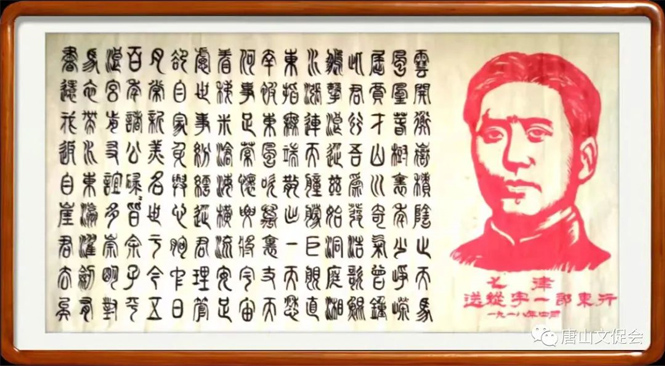 雲開衡嶽積陰止天馬
鳳凰春樹裏年少崢嶸
屈賈才山川奇氣曾鍾
此君行吾為發浩歌鯤
鵬擊浪從茲始洞庭湘
水漲連天艟艨巨艦直
東指無端散出一天愁
幸被東風吹萬里丈夫
何事足縈懷要將宇宙
看稊米滄海橫流安足
慮世事紛紜從君理管
卻自家身與心胸中日
月常新美名世于今五
百年諸公碌碌皆余子平
浪宮前友誼多崇明對
馬衣帶水東瀛濯劍有
書還我返自崖君去矣
七律
送縱宇一郎東行
一九一八年四月
唐山文促会